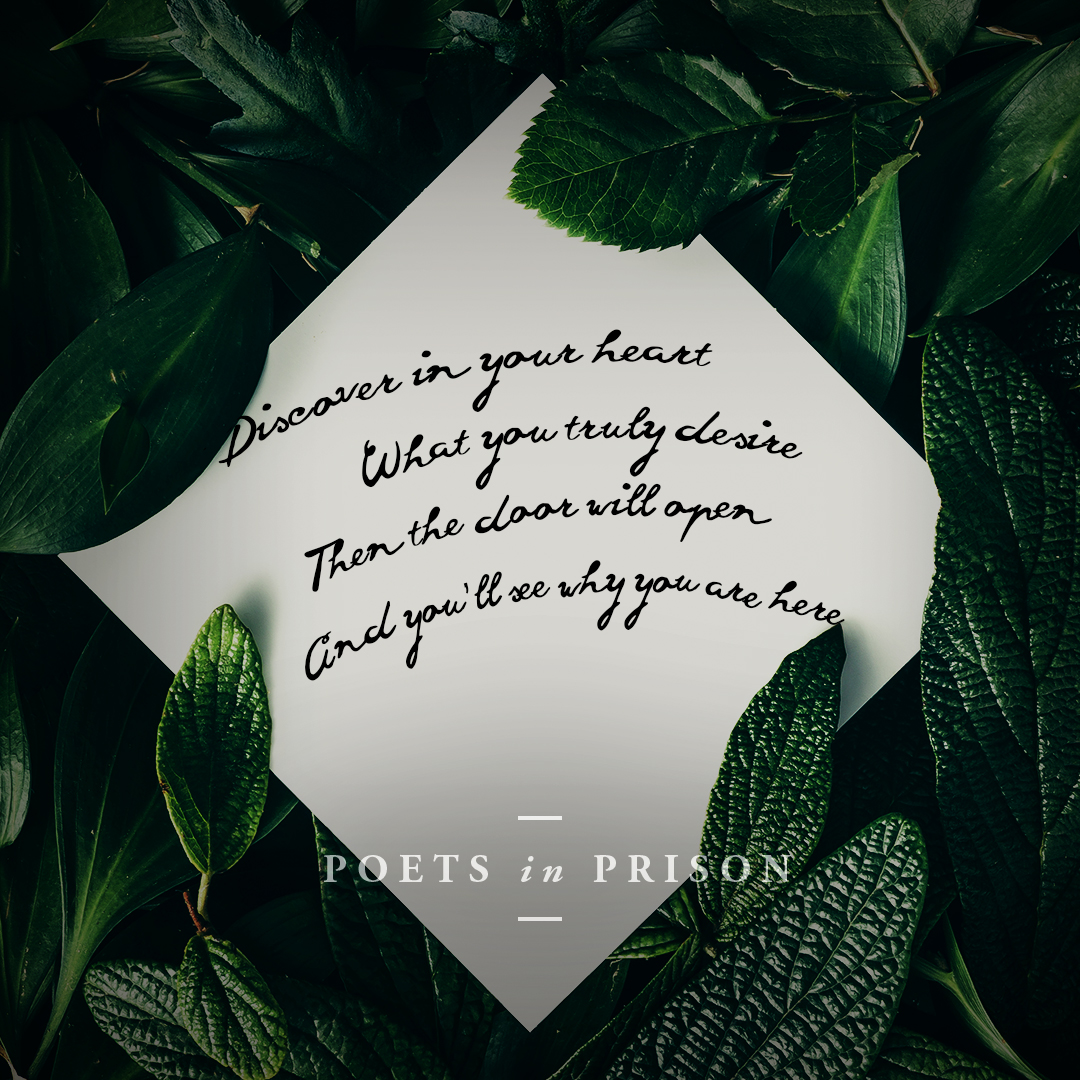 Discover in your heart
What you truly desire
Then the door will open
And you'll see why you are here
POETS in PRISON